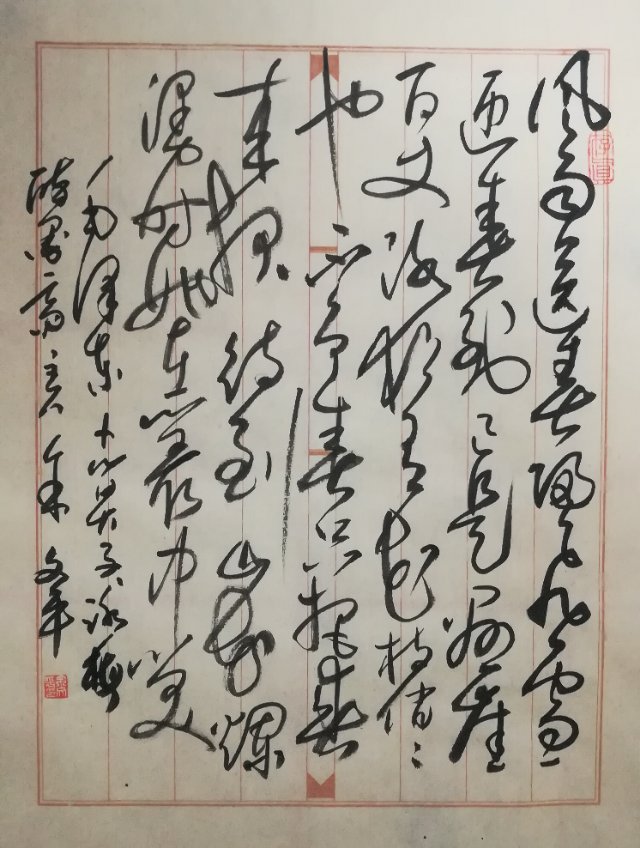 风雨送春归飞雪
迎春到已是悬崖
百丈冰犹有花枝俏〻
也不争春只把春
来报待到山花烂
漫时她在丛中笑
毛泽东卜算子咏梅